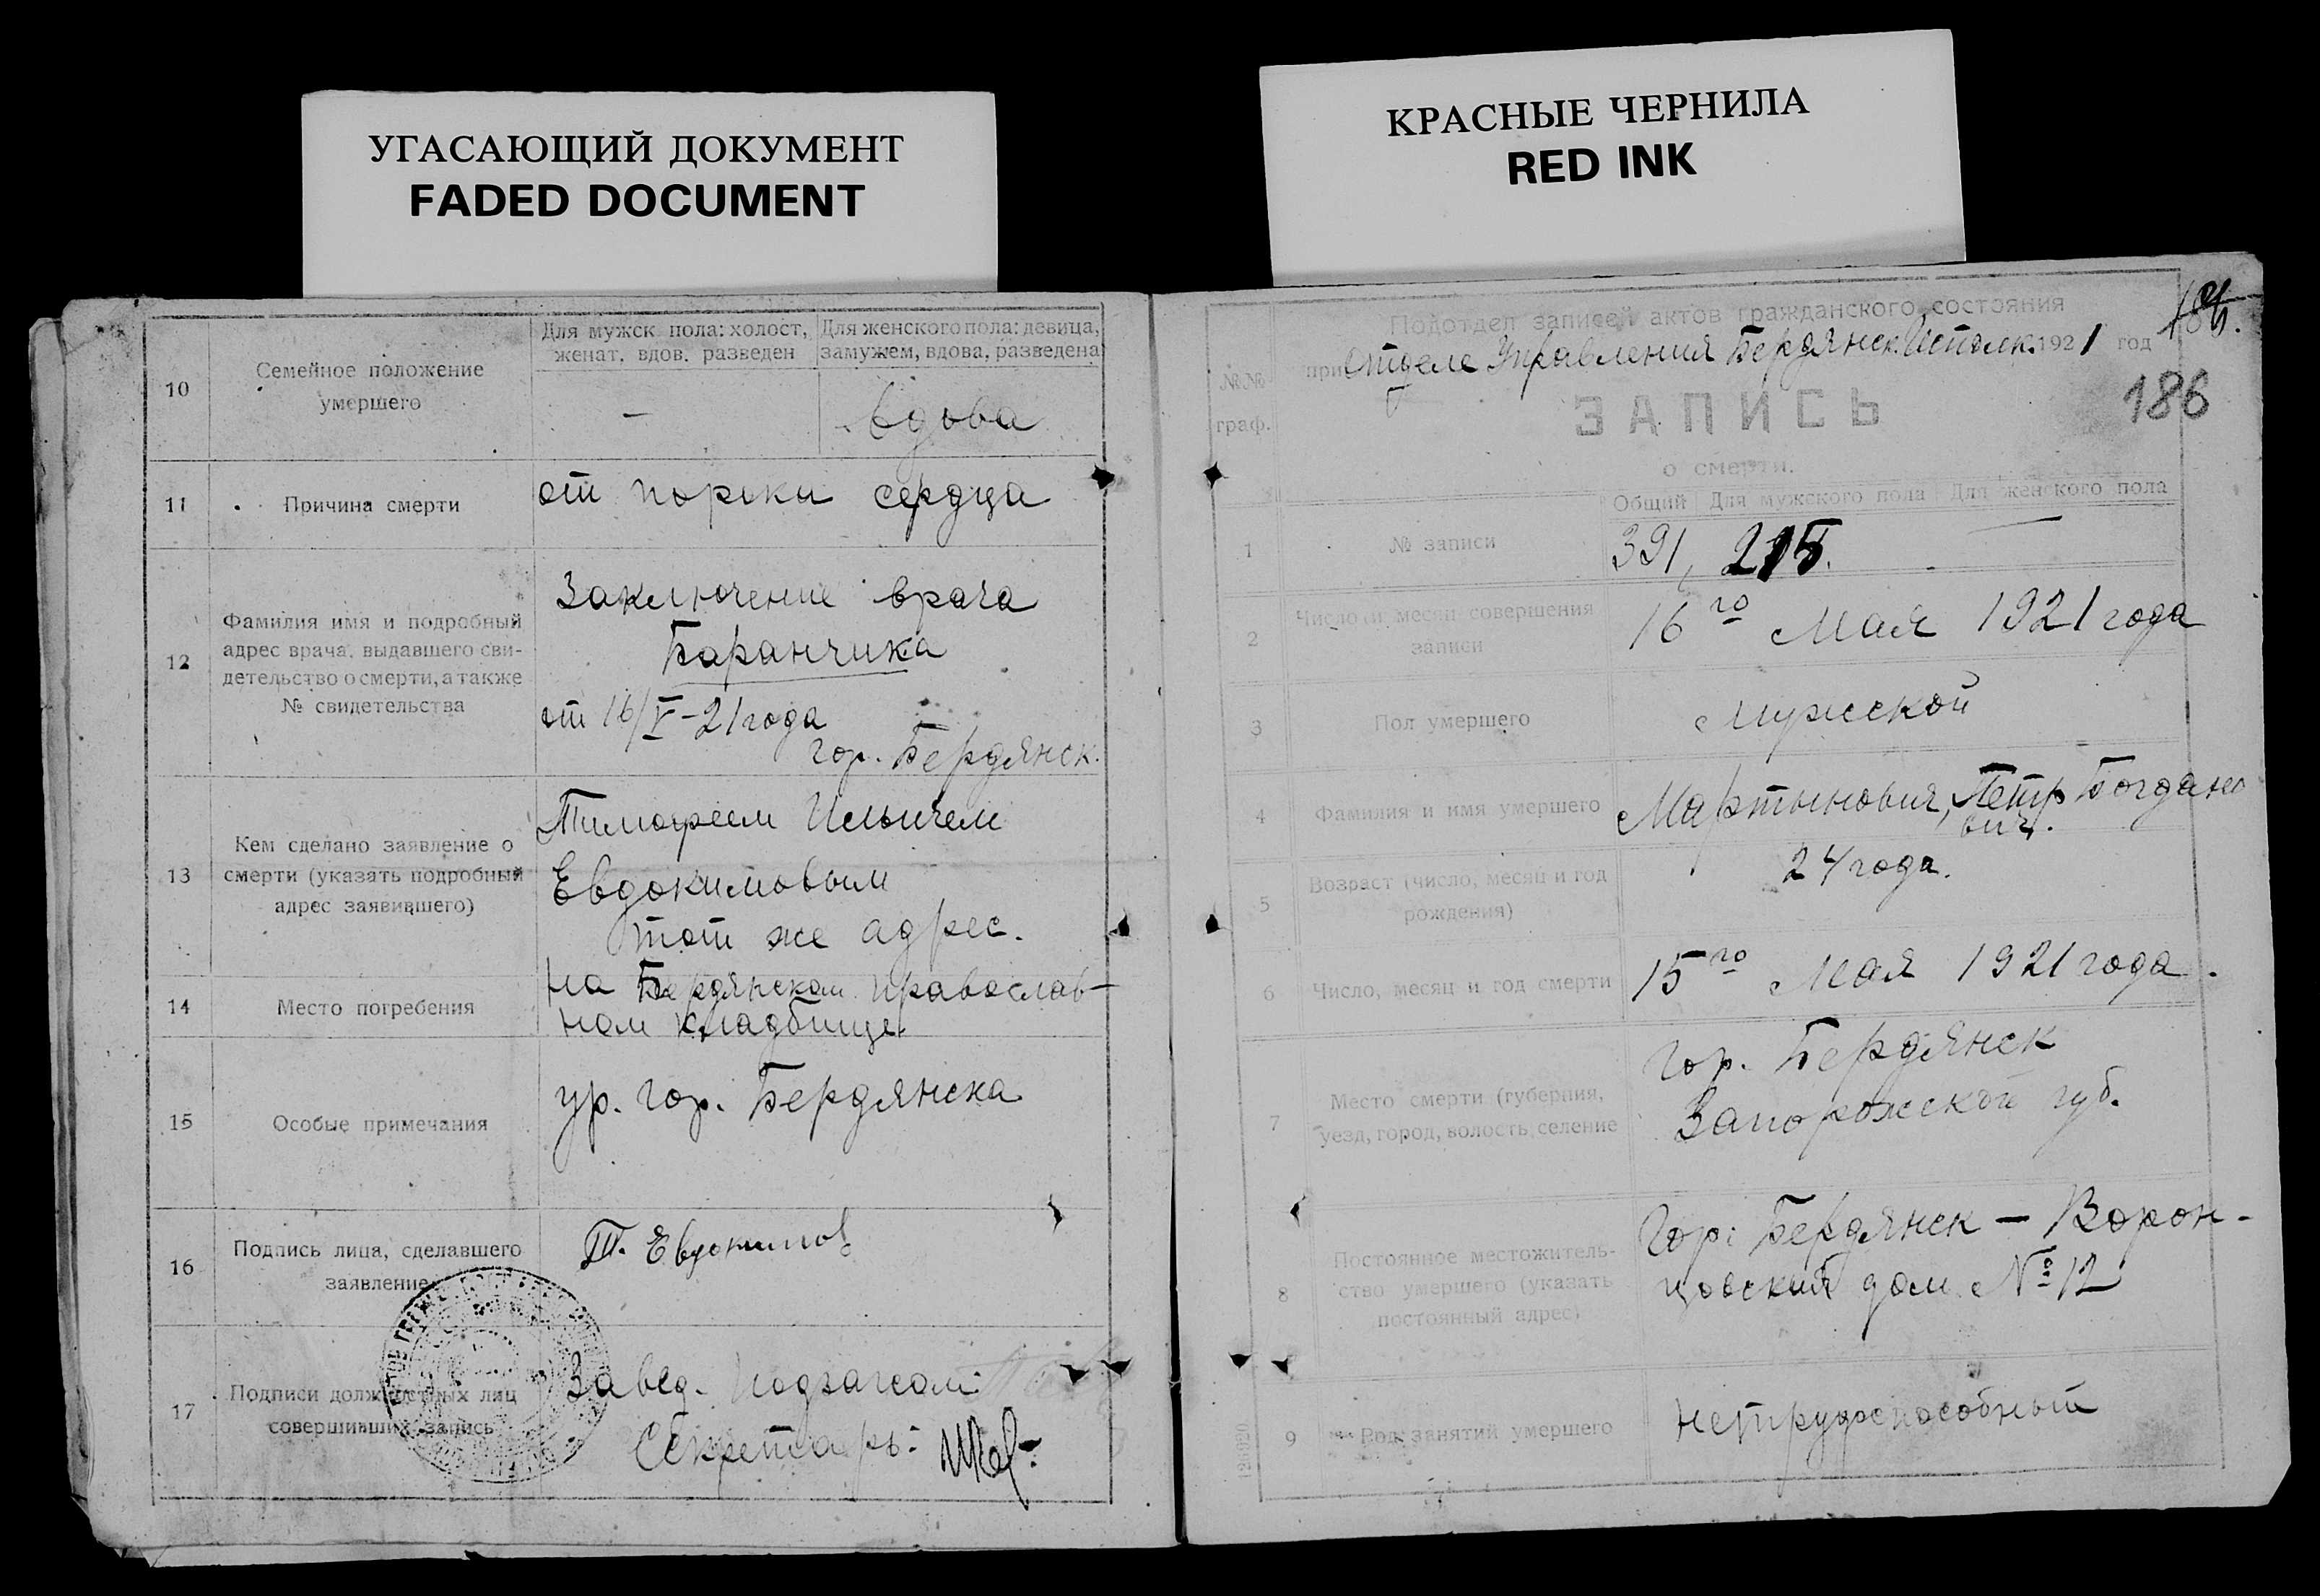 УГАСАЮЩИЙ ДОКУМЕНТ
FADED DOCUMENT
КРАСНЫЕ ЧЕРНИЛА
RED INK
10
Семейное положение
умершего
Для мужск. пола: холост,
женат, вдов, разведен
Для женского пола: девица,
замужем, вдова, разведена
—
вдова
11
Причина смерти
от порока сердца
12
Фамилия имя и подробный
адрес врача, выдавшего сви-
детельство о смерти, а также
№ свидетельства
Заключение врача
Баранчика
от 16/V-21 года
гор. Бердянск.
13
Кем сделано заявление о
смерти (указать подробный
адрес заявившего)
Тимофеем Ильичем
Евдокимовым
тот же адрес.
14
Место погребения
на Бердянском православ-
ном кладбище
15
Особые примечания
ур. гор. Бердянска
16
Подпись лица, сделавшего
заявление
Т. Евдокимов
17
Подписи должностных лиц
совершивших запись
Завед. подзагсом:
Секретарь:
№№
граф.
Подотдел записей актов гражданского состояния
при Отделе Управления Бердянск. Исполк. 1921 год
186
ЗАПИСЬ
о смерти.
Общий
Для мужского пола
Для женского пола
1
№ записи
391, 215. —
2
Число и месяц совершения
записи
16го Мая 1921 года
3
Пол умершего
Мужской
4
Фамилия и имя умершего
Мартынович, Петр Богдано
вич.
5
Возраст (число, месяц и год
рождения)
24 года.
6
Число, месяц и год смерти
15го Мая 1921 года.
7
Место смерти (губерния,
уезд, город, волость, селение
Гор. Бердянск
Запорожской губ.
8
Постоянное местожитель-
ство умершего (указать
постоянный адрес)
Гор: Бердянск — Ворон-
цовский дом № 12
9
Род занятий умершего
нетрудоспособный